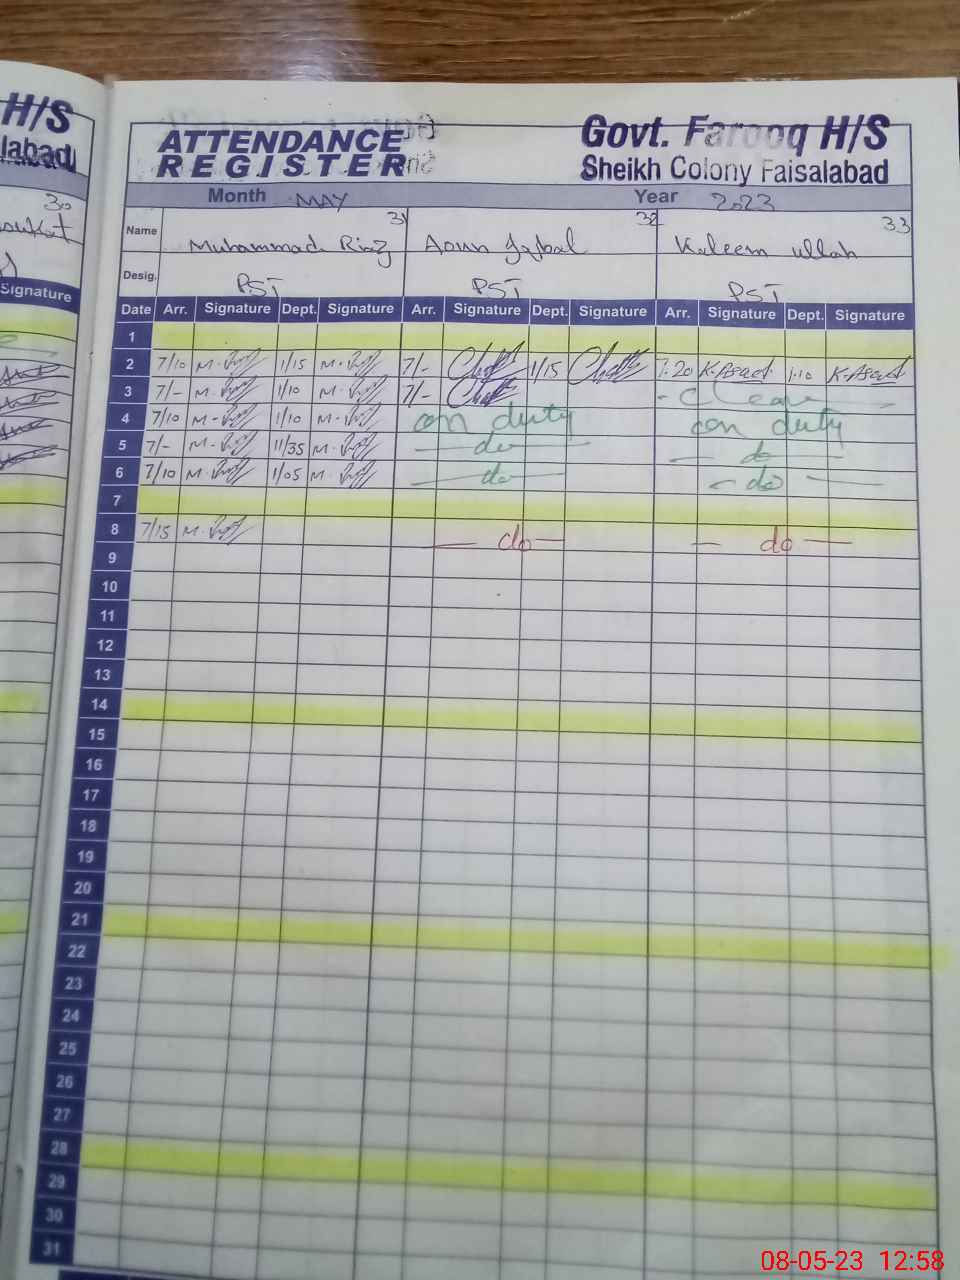 H/S
labad
30
Signature
ATTENDANCE
REGISTER
Govt. Farooq H/S
Sheikh Colony Faisalabad
Month MAY Year 2023
31 32 33
Name Muhammad Riaz Iqbal Kaleem ullah
Desig. PST PST PST
Date Arr. Signature Dept. Signature Arr. Signature Dept. Signature Arr. Signature Dept. Signature
1
2 7/10 1/15 7/- 1/15 7.20 K.Asad 1.10 K.Asad
3 7/- 1/10 7/- C leave
4 7/10 1/10 on duty on duty
5 7/- 11/35 do do
6 7/10 1/05 do do
7
8 7/15 do do
9
10
11
12
13
14
15
16
17
18
19
20
21
22
23
24
25
26
27
28
29
30
31
08-05-23 12:58